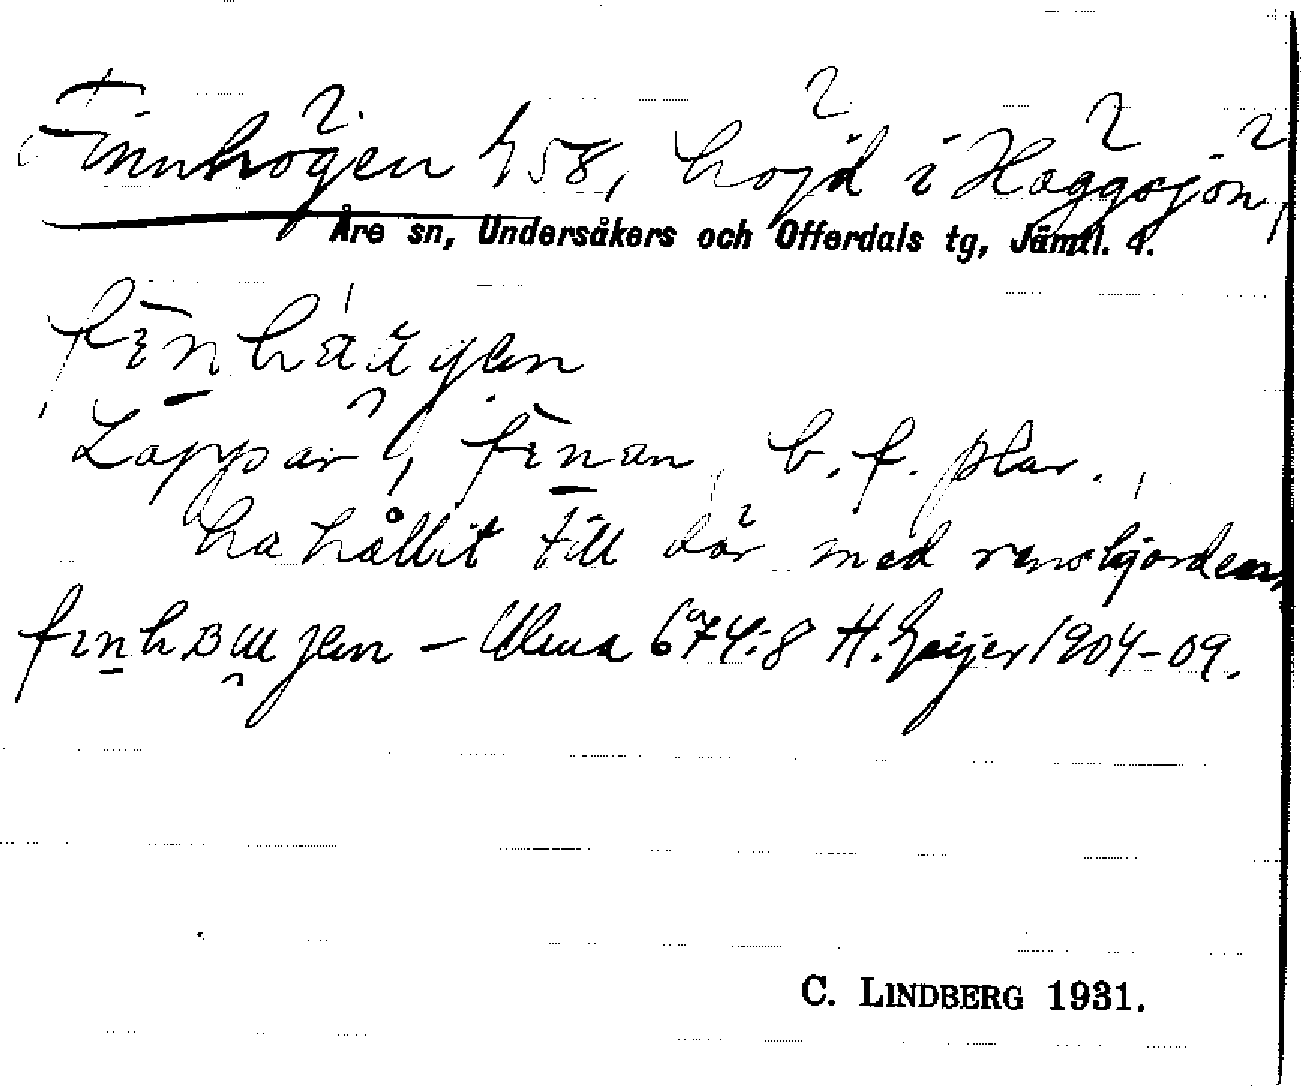 Finnhögen 458, höjd i Häggsjön,
Åre sn, Undersåkers och Offerdals tg, Jämtl. l.
Lappar, finan b. f. plur.,
ha hållit till där med renshjorden,
– Ulma 674:8 H. Geijer 1904–09.
C. LINDBERG 1931.